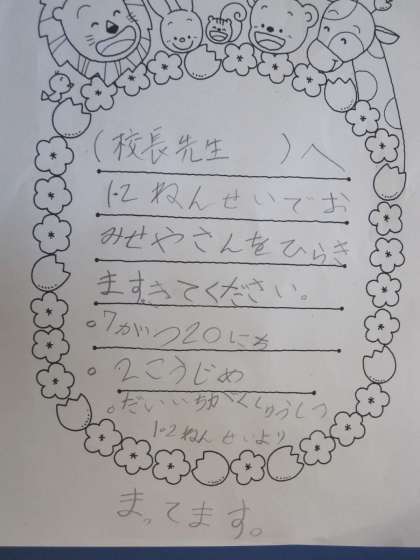 (校長先生)へ
1-2ねんせいでお
みせやさんをひらき
ます。きてください。
。7がつ20にち
。2こうじめ
。だいいちがくしゅうしつ
1-2ねんせいより
まってます。